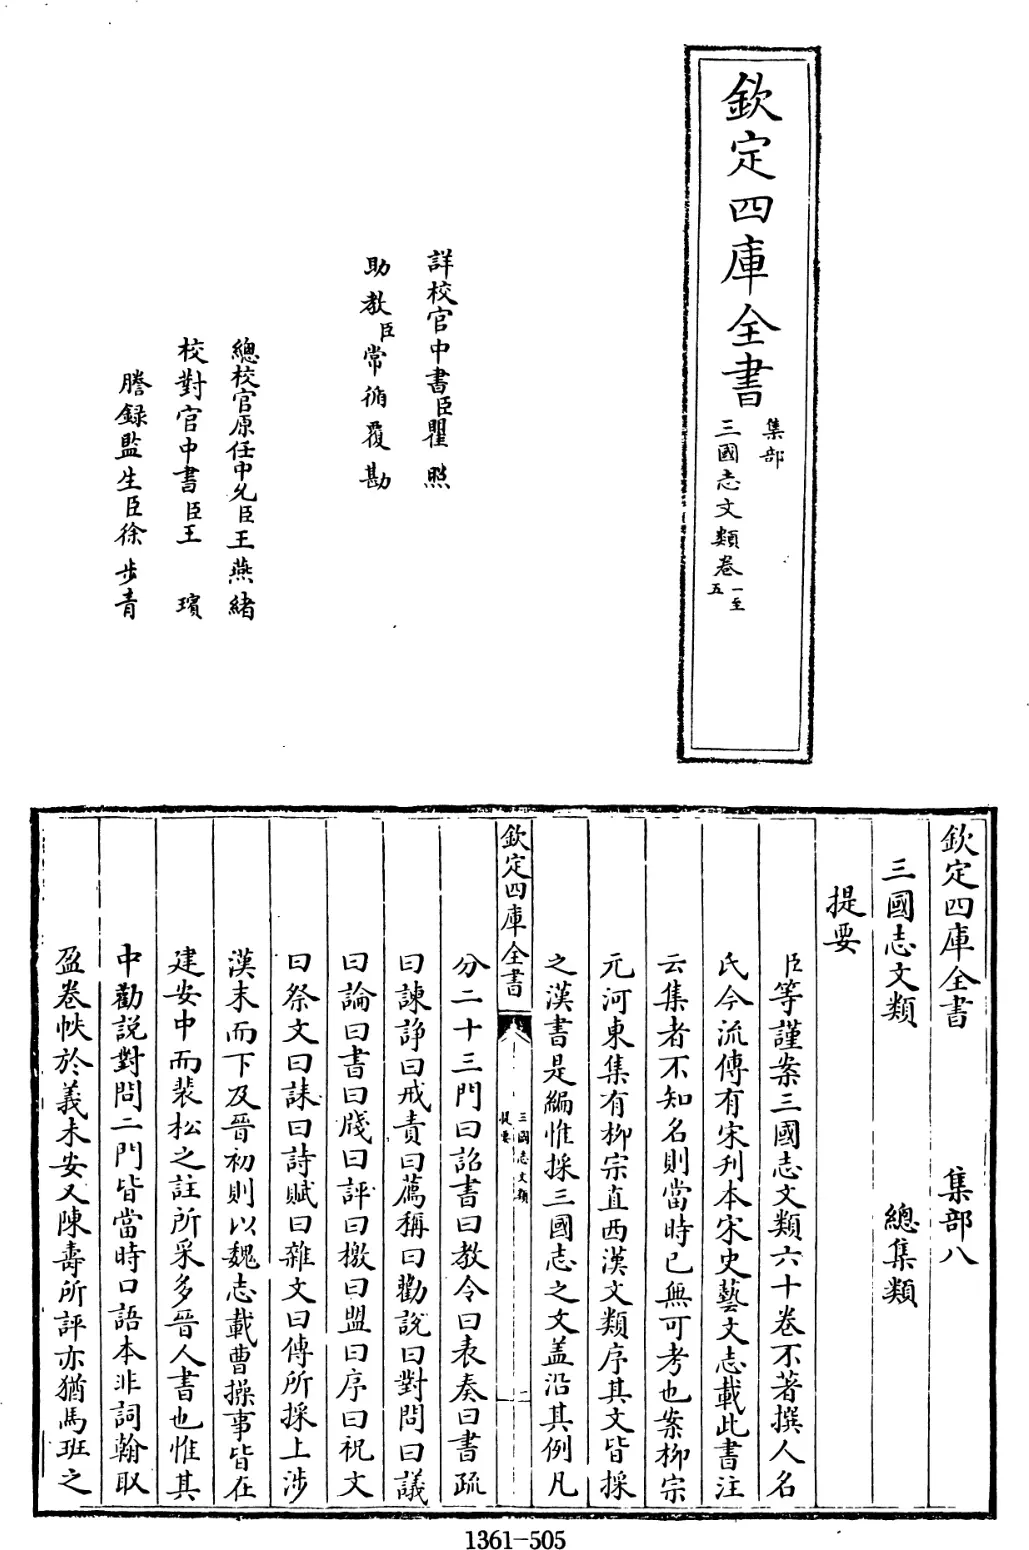 欽定四庫全書
集部
三國志文類卷一至五
詳校官中書臣瞿照
助教臣常循覆勘
總校官原任中允臣王燕緒
校對官中書臣王璸
謄錄監生臣徐步青
欽定四庫全書 集部八
三國志文類 總集類
提要
臣等謹案三國志文類六十卷不著撰人名
氏今流傳有宋刋本宋史藝文志載此書注
云集者不知名則當時已無可考也案柳宗
元河東集有柳宗直西漢文類序其文皆採
之漢書是編惟採三國志之文盖沿其例凡
欽定四庫全書 三國志文類 提要 二
分二十三門曰詔書曰教令曰表奏曰書疏
曰諫諍曰戒責曰薦稱曰勸說曰對問曰議
曰論曰書曰牋曰評曰檄曰盟曰序曰祝文
曰祭文曰誄曰詩賦曰雜文曰傳所採上涉
漢末而下及晉初則以魏志載曹操事皆在
建安中而裴松之註所采多晉人書也惟其
中勸説對問二門皆當時口語本非詞翰取
盈卷帙於義未安又陳壽所評亦猶馬班之
1361-505